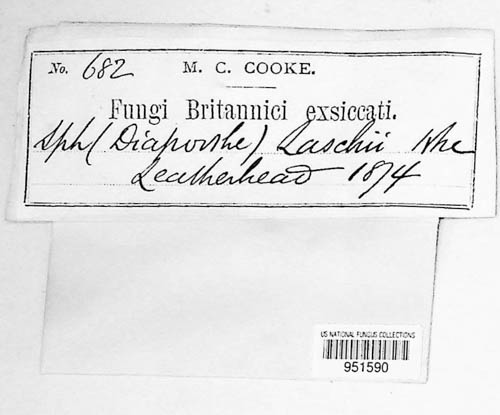 No. 682 M. C. COOKE.
Fungi Britannici exsiccati.
Sph (Diaporthe) Laschii Nke
Leatherhead 1874
US NATIONAL FUNGUS COLLECTIONS
951590